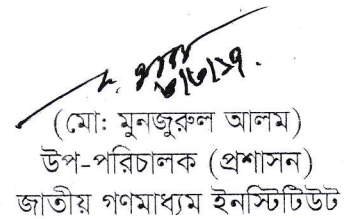 ৬/৬/১৭.
(মো: মুনজুরুল আলম)
উপ-পরিচালক (প্রশাসন)
জাতীয় গণমাধ্যম ইনস্টিটিউট